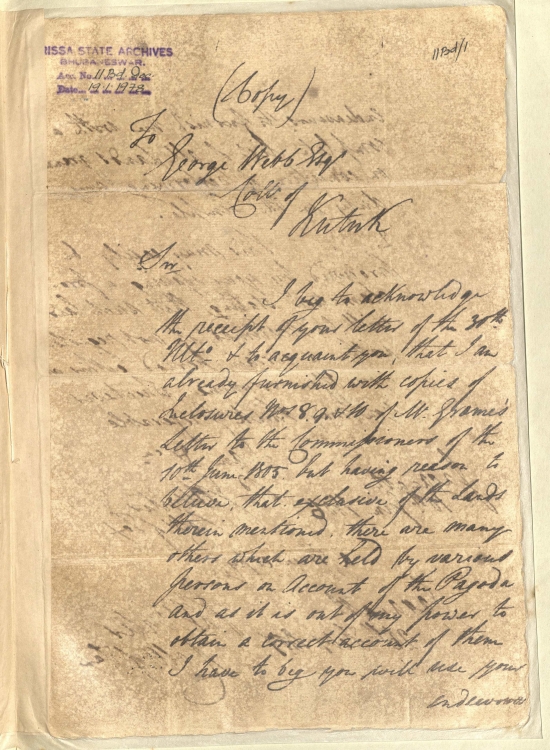 11Bd/1
ORISSA STATE ARCHIVES
BHUBANESWAR.
Acc. No. 11 Bd. Dec
Date 19.1.1978
(Copy)
To
George Webb Esqr
Collr of
Kutuk
Sir,
I beg to acknowledge
the receipt of your letter of the 30th
Ulto & to acquaint you, that I am
already furnished with copies of
Inclosures Nos 8. 9. & 10. of Mr. Grame's
Letter to the Commissioners of the
10th June 1805 but having reason to
believe, that exclusive of the Lands
therein mentioned, there are many
others which are held by various
persons on Account of the Pagoda
and as it is out of my power to
obtain a correct account of them
I have to beg you will use your
endeavour